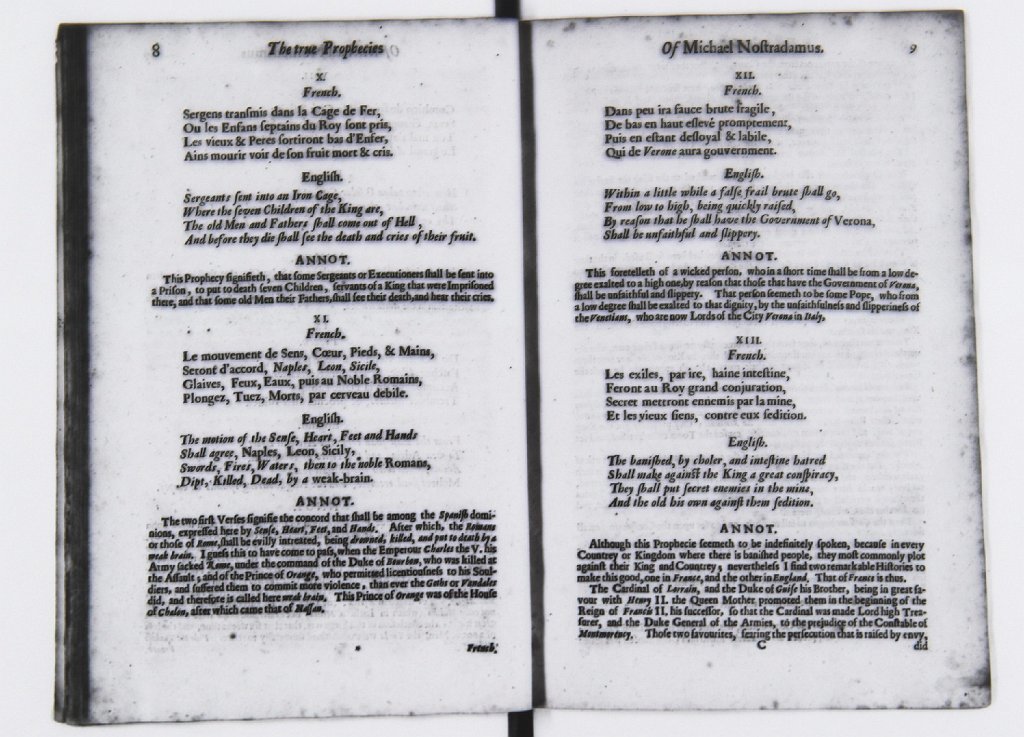 8 The true Prophecies
X.
French.
Sergens tranſmis dans la Cage de Fer,
Ou les Enfans ſeptains du Roy ſont pris,
Les vieux & Peres ſortiront bas d'Enfer,
Ains mourir voir de ſon fruit mort & cris.
Engliſh.
Sergeants ſent into an Iron Cage,
Where the ſeven Children of the King are,
The old Men and Fathers ſhall come out of Hell,
And before they die ſhall ſee the death and cries of their fruit.
ANNOT.
This Prophecy ſignifieth, that ſome Sergeants or Executioners ſhall be ſent into
a Priſon, to put to death ſeven Children, ſervants of a King that were Impriſoned
there, and that ſome old Men their Fathers, ſhall ſee their death, and hear their cries.
XI.
French.
Le mouvement de Sens, Cœur, Pieds, & Mains,
Seront d'accord, Naples, Leon, Sicile,
Glaives, Feux, Eaux, puis au Noble Romains,
Plongez, Tuez, Morts, par cerveau debile.
Engliſh.
The motion of the Senſe, Heart, Feet and Hands
Shall agree, Naples, Leon, Sicily,
Swords, Fires, Waters, then to the noble Romans,
Dipt, Killed, Dead, by a weak-brain.
ANNOT.
The two firſt Verſes ſignifie the concord that ſhall be among the Spaniſh domi-
nions, expreſſed here by Senſe, Heart, Feet, and Hands. After which, the Romans
or thoſe of Rome, ſhall be evilly intreated, being drowned, killed, and put to death by a
weak brain. I gueſs this to have come to paſs, when the Emperour Charles the V. his
Army ſacked Rome, under the command of the Duke of Bourbon, who was killed at
the Aſſault; and of the Prince of Orange, who permitted licentiouſneſs to his Soul-
diers, and ſuffered them to commit more violence, than ever the Goths or Vandales
did, and therefore is called here weak brain. This Prince of Orange was of the Houſe
of Chalon, after which came that of Naſſau.
* French.
Of Michael Noſtradamus. 9
XII.
French.
Dans peu ira fauce brute fragile,
De bas en haut eſlevé promptement,
Puis en eſtant deſloyal & labile,
Qui de Verone aura gouvernment.
Engliſh.
Within a little while a falſe frail brute ſhall go,
From low to high, being quickly raiſed,
By reaſon that he ſhall have the Government of Verona,
Shall be unfaithful and ſlippery.
ANNOT.
This foretelleth of a wicked perſon, who in a ſhort time ſhall be from a low de-
gree exalted to a high one, by reaſon that thoſe that have the Government of Verona,
ſhall be unfaithful and ſlippery. That perſon ſeemeth to be ſome Pope, who from
a low degree ſhall be exalted to that dignity, by the unfaithfulneſs and ſlipperineſs of
the Venetians, who are now Lords of the City Verona in Italy.
XIII.
French.
Les exiles, par ire, haine inteſtine,
Feront au Roy grand conjuration,
Secret mettront ennemis par la mine,
Et les vieux ſiens, contre eux ſedition.
Engliſh.
The baniſhed, by choler, and inteſtine hatred
Shall make againſt the King a great conſpiracy,
They ſhall put ſecret enemies in the mine,
And the old his own againſt them ſedition.
ANNOT.
Although this Prophecie ſeemeth to be indefinitely ſpoken, becauſe in every
Countrey or Kingdom where there is baniſhed people, they moſt commonly plot
againſt their King and Countrey; nevertheleſs I find two remarkable Hiſtories to
make this good, one in France, and the other in England. That of France is thus.
The Cardinal of Lorrain, and the Duke of Guiſe his Brother, being in great fa-
vour with Henry II. the Queen Mother promoted them in the beginning of the
Reign of Francis II. his ſucceſſor, ſo that the Cardinal was made Lord high Trea-
ſurer, and the Duke General of the Armies, to the prejudice of the Conſtable of
Montmorency. Thoſe two favourites, fearing the perſecution that is raiſed by envy,
C did